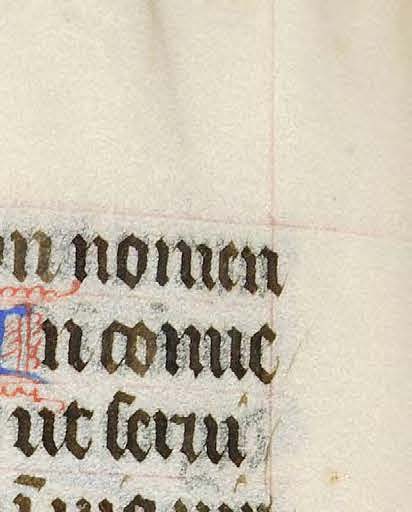 nomen
In conue
ut serui